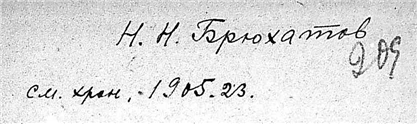 Н. Н. Брюхатов
209
см. хрон. 1905.23.